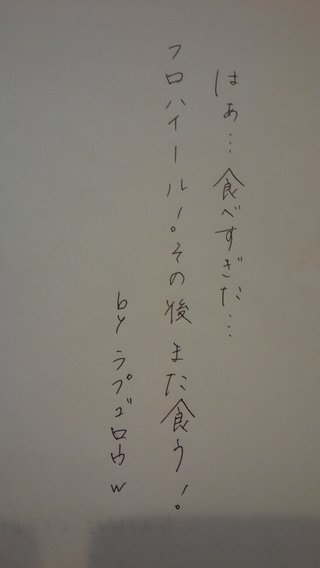 はあ…食べすぎた…
フロハイール！。その後また食う！
by ラプゴロウ w